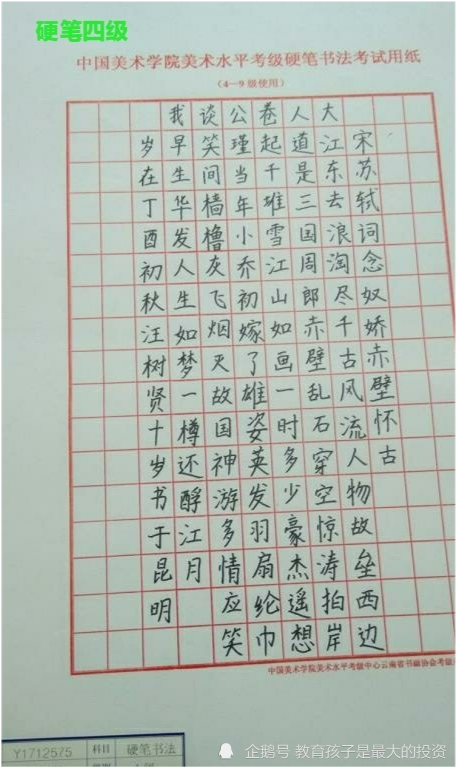 硬笔四级
中国美术学院美术水平考级硬笔书法考试用纸
（4—9级使用）
宋苏轼词念奴娇赤壁怀古
大江东去浪淘尽千古风流人物故垒西边
人道是三国周郎赤壁乱石穿空惊涛拍岸
卷起千堆雪江山如画一时多少豪杰遥想
公瑾当年小乔初嫁了雄姿英发羽扇纶巾
谈笑间樯橹灰飞烟灭故国神游多情应笑
我早生华发人生如梦一樽还酹江月
岁在丁酉初秋汪树贤十岁书于昆明
中国美术学院美术水平考级中心云南省书画协会考级
Y1712575 科目 硬笔书法
企鹅号 教育孩子是最大的投资